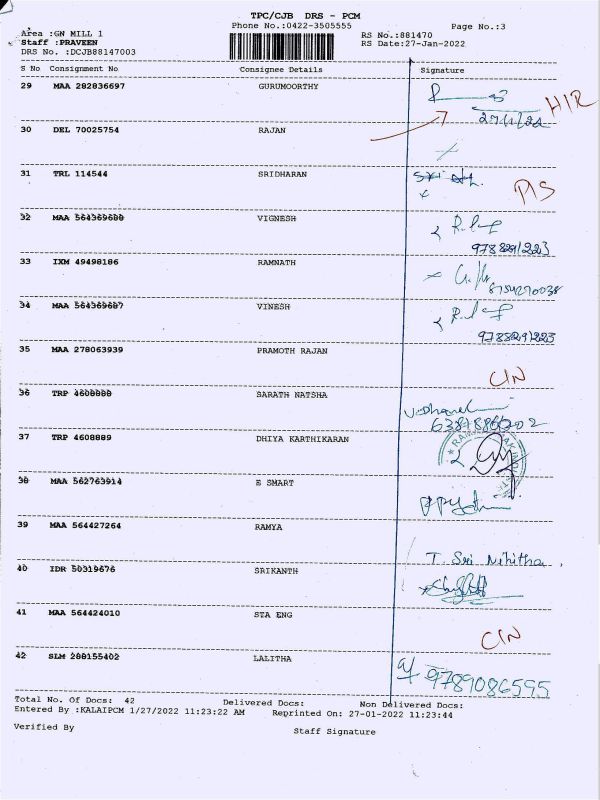 TPC/CJB DRS - PCM
Phone No.:0422-3505555
Page No.:3
Area :GN MILL 1
Staff :PRAVEEN
DRS No. :DCJB88147003
RS No.:881470
RS Date:27-Jan-2022
S No Consignment No Consignee Details Signature
29 MAA 282836697 GURUMOORTHY
HIR
27/1/22
30 DEL 70025754 RAJAN
31 TRL 114544 SRIDHARAN
32 MAA 564369688 VIGNESH
33 IXM 49498186 RAMNATH
8754270038
34 MAA 564369687 VINESH
35 MAA 278063939 PRAMOTH RAJAN
CIN
36 TRP 4608888 SARATH NATSHA
37 TRP 4608889 DHIYA KARTHIKARAN
38 MAA 562763914 E SMART
39 MAA 564427264 RAMYA
T. Sri Nihitha
40 IDR 50319676 SRIKANTH
41 MAA 564424010 STA ENG
CIN
42 SLM 288155402 LALITHA
9789086595
Total No. Of Docs: 42 Delivered Docs: Non Delivered Docs:
Entered By :KALAIPCM 1/27/2022 11:23:22 AM Reprinted On: 27-01-2022 11:23:44
Verified By Staff Signature